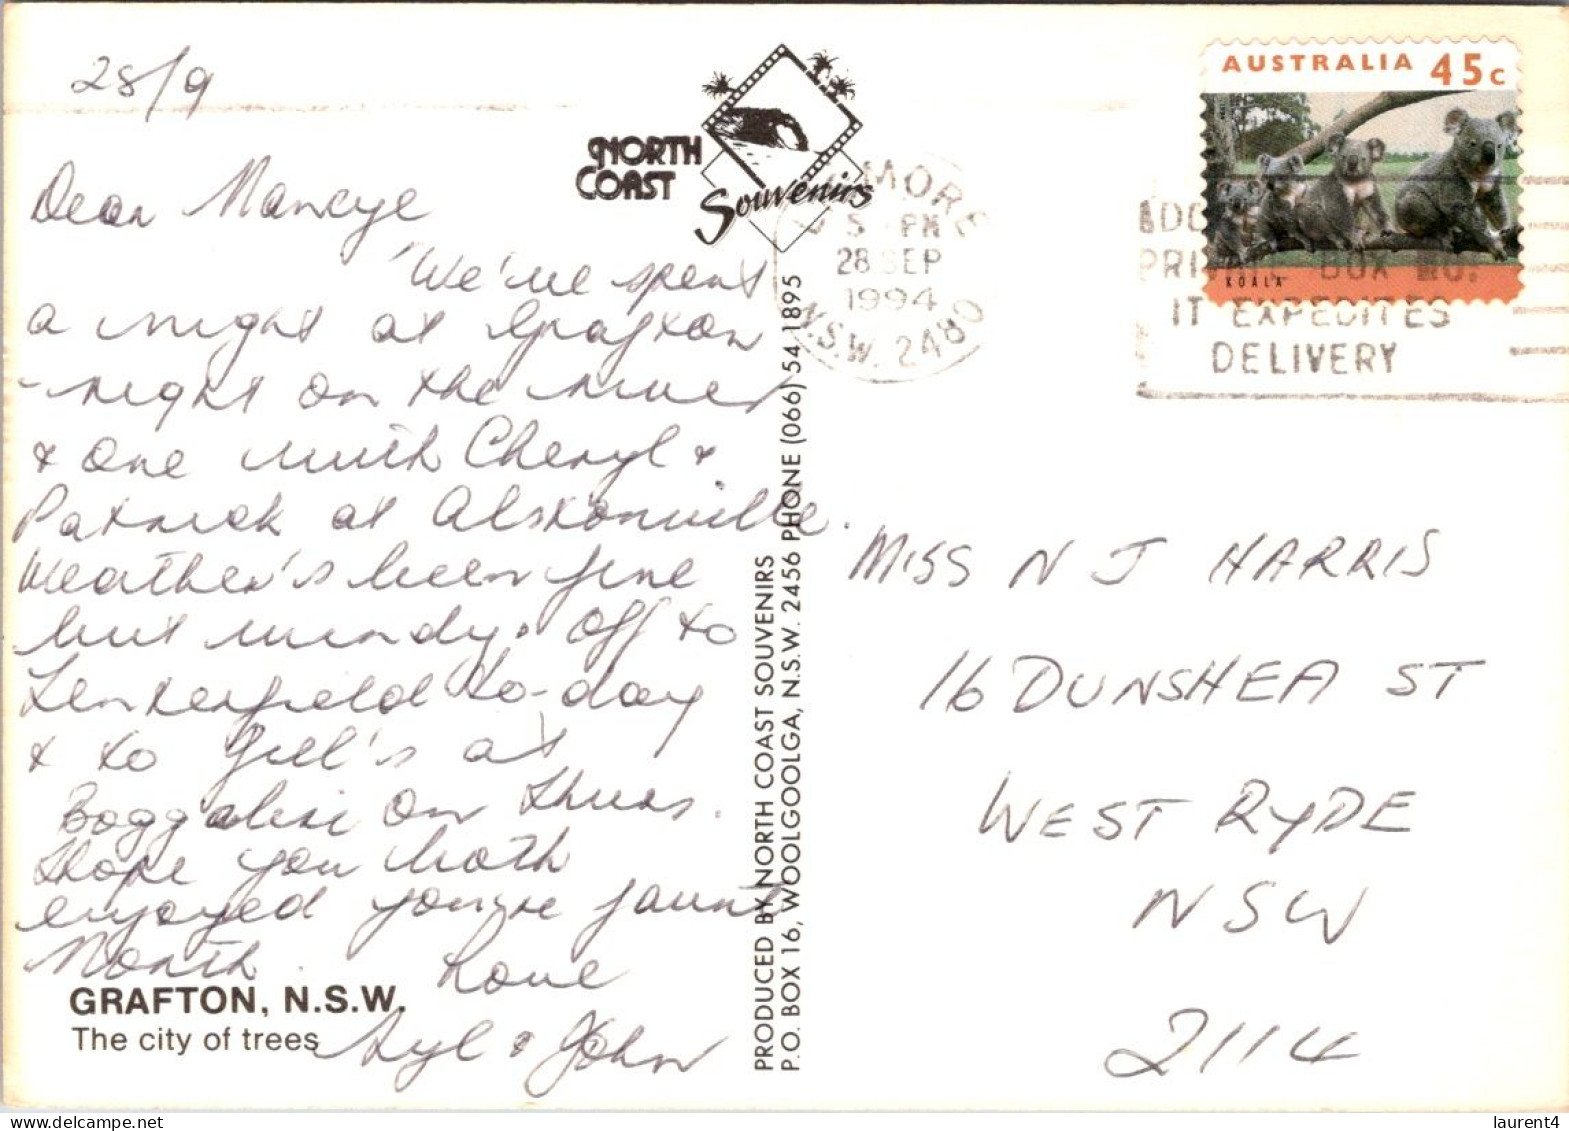 28/9
Dear Nancye
We've spent
a night at Grafton
- night on the river
& one with Cheryl &
Patrick at Alstonville.
Weather's been fine
but windy. Off to
Tenterfield to-day
& to Gill's at
Boggabri on Thurs.
Hope you both
enjoyed your jaunt
North. Love
Syl & John
GRAFTON, N.S.W.
The city of trees
NORTH
COAST
Souvenirs
PRODUCED BY NORTH COAST SOUVENIRS
P.O. BOX 16, WOOLGOOLGA, N.S.W. 2456 PHONE (066) 54 1895
MORE
5 PM
28 SEP
1994
N.S.W. 2480
AUSTRALIA 45c
KOALA
BOX NO.
IT EXPEDITES
DELIVERY
MISS N J HARRIS
16 DUNSHEA ST
WEST RYDE
NSW
2114
laurent4